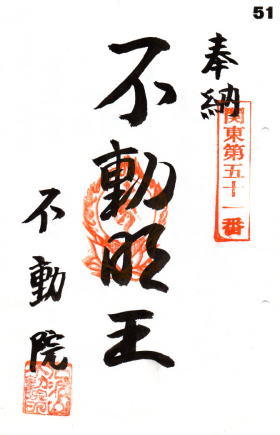 51
奉納
関東第五十一番
不動明王
不動院